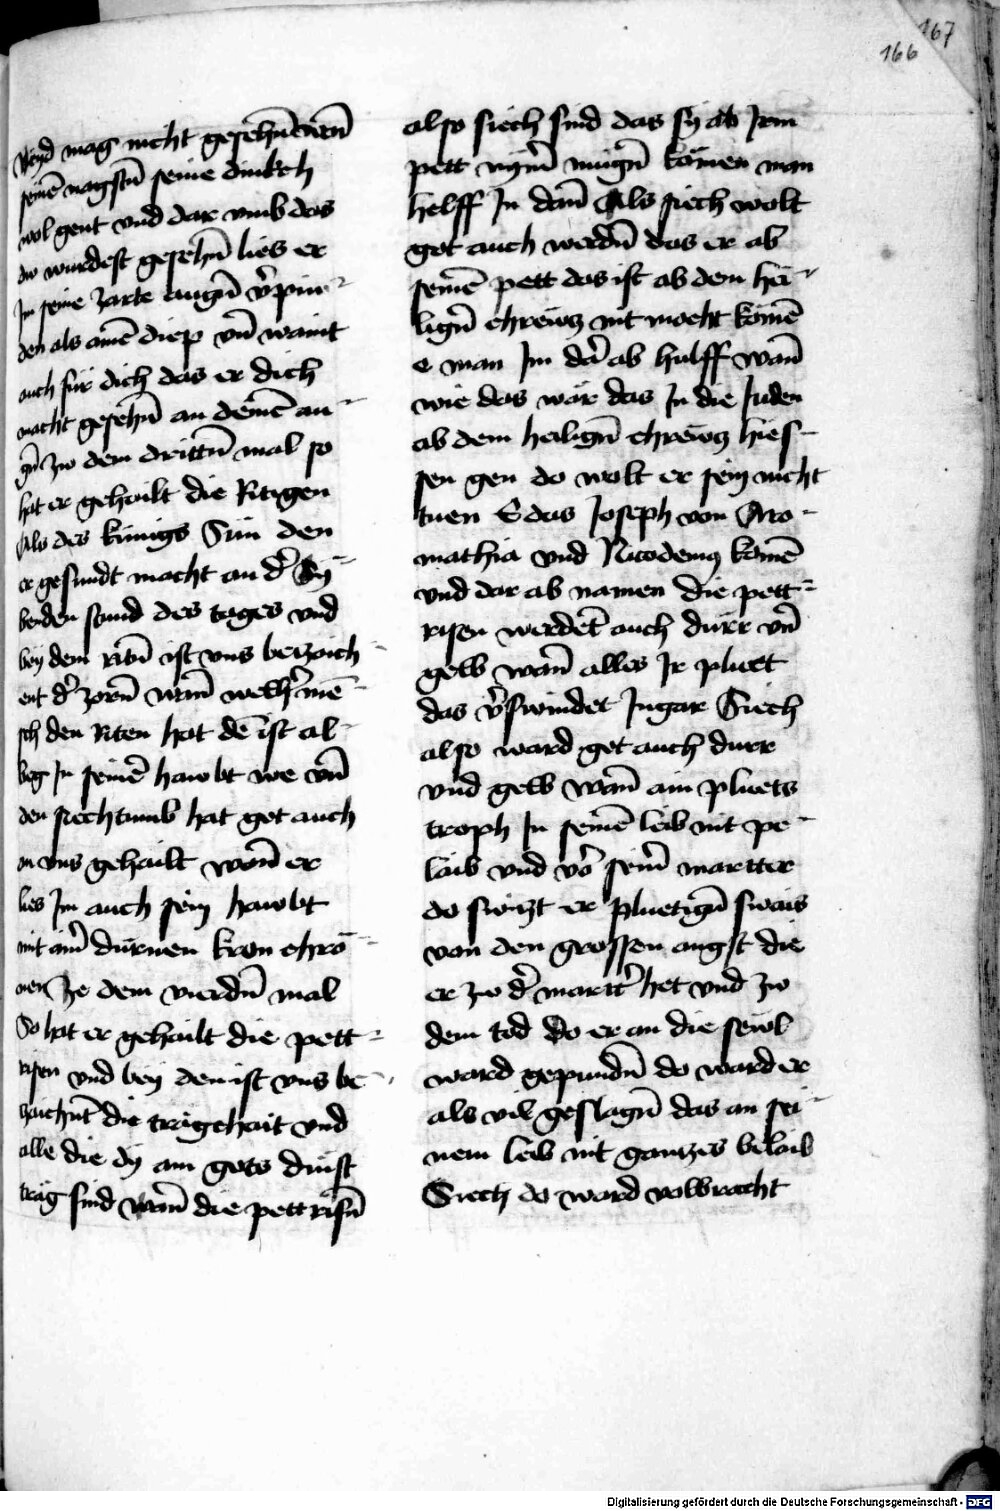 167
166
neyd mag nicht gesehñ wen̄
seinē nagstn̄ seine dinkch
wol gent vnd dar vmb das
du wurdest gesehn̄ lies er
Im seine zarte augn̄ v̉pin-
den als ainē diep vn̄ waint
auch für dich das er dich
macht gesehn̄ an deinē au-
gn̄ zw dem drittn̄ mal so
hat er gehailt die Ritigen
Als des kunigs Sun den
er gesundt macht an d̉ Sy-
benden stund des tages vnd
bey dem ritn̄ ist vns bezaich-
ent d̉ zorn̄ wan̄ welh̉ mē-
sch den Riten hat dē ist al-
beg In seinē hawbt we vn̄
den siechtumb hat got auch
an vns gehailt wan̄ er
lies Im auch sein hawbt
mit ain̉ dürnen kron chrö-
nen Ze dem vierdn̄ mal
So hat er gehailt die pett-
risen vnd bey dem ist vns be-
zaichnt̄ die trägehait vnd
alle die dy am gots dinst
träg sind wan̄ die pettrisn̄
also siech sind das sy ab Irm
pett nym̄ mügn̄ kömen man
helff In dan̄ Als siech wolt
got auch werdn̄ das er ab
seinē pett das ist ab dem hei-
lign̄ chrewcz nit mocht kömē
e man Im da̓ ab hulff wan̄
wie das wär das In die Juden
ab dem heilign̄ chrewcz hies-
sen gen do wolt er sein nicht
tuen E das Joseph von Aro-
mathia vnd Nicodemus komē
vnd dar ab namen die pett-
risen werdet̄ auch dürr vn̄
gelb wan̄ alles Ir pluet
das v̉swindet Ingar Siech
also ward got auch durr
vnd gelb wan̄ ain pluets
troph In seinē leib nit pe-
laib vnd vō sein̉ martter
do swiczt er pluetign̄ swais
von den grossen angst die
er zw d̉ martt̉ het vnd zw
dem tod do er an die sewl
ward gepundn̄ do ward er
als vil geslagn̄ das an sei-
nem leib nit ganczes belaib
Siech do ward volbracht
Digitalisierung gefördert durch die Deutsche Forschungsgemeinschaft - DFG